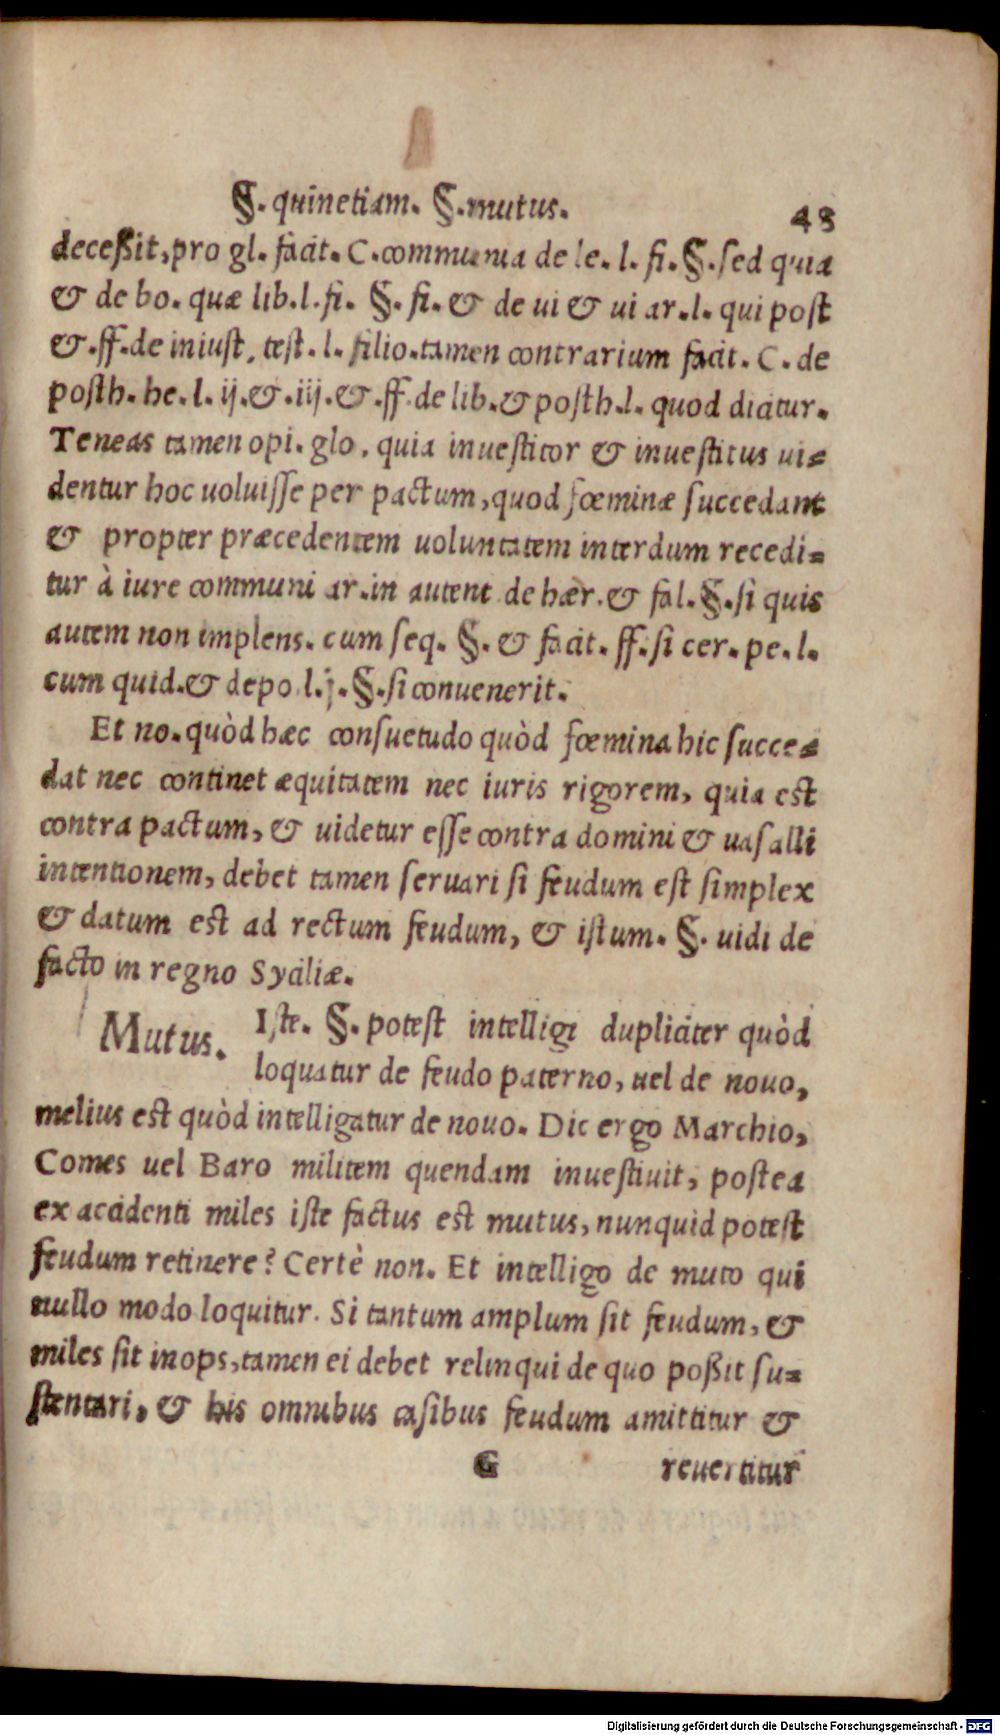 §. quinetiam. §. mutus. 48
deceßit, pro gl. facit. C. communia de le. l. fi. §. sed quia
& de bo. quæ lib. l. fi. §. fi. & de ui & ui ar. l. qui post
&. ff. de iniust. test. l. filio. tamen contrarium facit. C. de
posth. he. l. ij. &. iij. &. ff. de lib. & posth. l. quod dicitur.
Teneas tamen opi. glo. quia inuestitor & inuestitus ui=
dentur hoc uoluisse per pactum, quod fœminæ succedant
& propter præcedentem uoluntatem interdum recedi=
tur à iure communi ar. in autent de hær. & fal. §. si quis
autem non implens. cum seq. §. & facit. ff. si cer. pe. l.
cum quid. & depo l. j. §. si conuenerit.
Et no. quòd hæc consuetudo quòd fœmina hic succe=
dat nec continet æquitatem nec iuris rigorem, quia est
contra pactum, & uidetur esse contra domini & uasalli
intentionem, debet tamen seruari si feudum est simplex
& datum est ad rectum feudum, & istum. §. uidi de
facto in regno Syciliæ.
Mutus. Iste. §. potest intelligi dupliciter quòd
loquatur de feudo paterno, uel de nouo,
melius est quòd intelligatur de nouo. Dic ergo Marchio,
Comes uel Baro militem quendam inuestiuit, postea
ex accidenti miles iste factus est mutus, nunquid potest
feudum retinere? Certè non. Et intelligo de muto qui
nullo modo loquitur. Si tantum amplum sit feudum, &
miles sit inops, tamen ei debet relinqui de quo poßit su=
stentari, & his omnibus casibus feudum amittitur &
G reuertitur
Digitalisierung gefördert durch die Deutsche Forschungsgemeinschaft - DFG